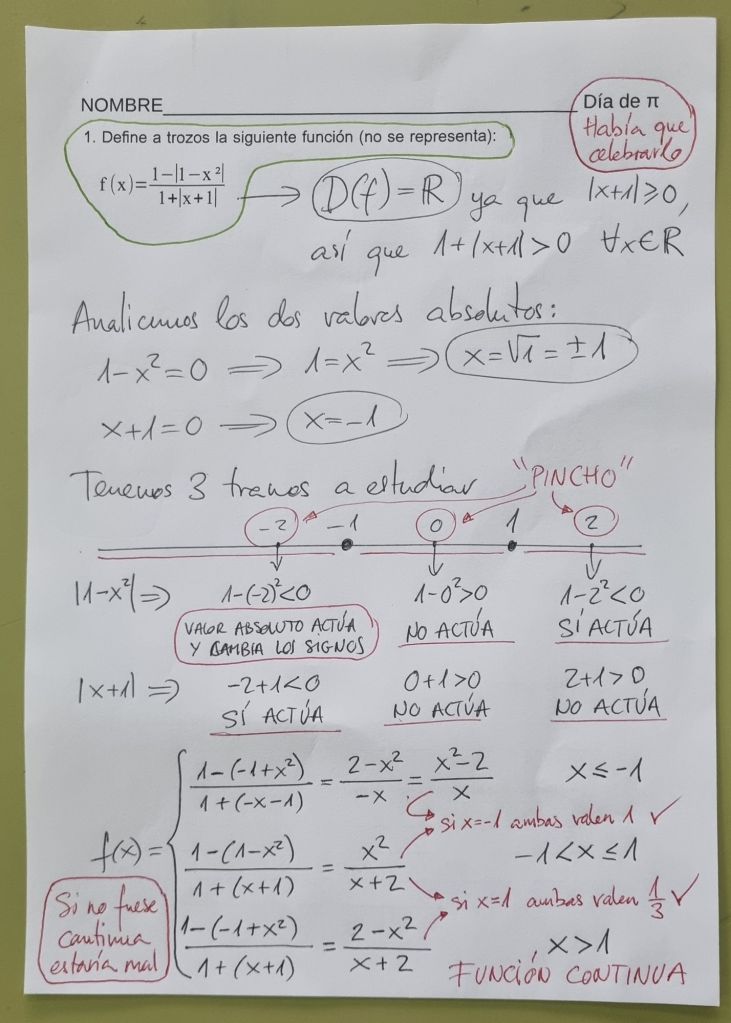 NOMBRE
Día de π
Había que
celebrarlo
1. Define a trozos la siguiente función (no se representa):
f(x)=(1-|1-x²|)/(1+|x+1|) → D(f)=ℝ ya que |x+1|≥0,
así que 1+|x+1|>0 ∀x∈ℝ
Analicemos los dos valores absolutos:
1-x²=0 ⟹ 1=x² ⟹ x=√1=±1
x+1=0 ⟹ x=-1
Tenemos 3 tramos a estudiar "PINCHO"
-2 -1 0 1 2
|1-x²| ⟹ 1-(-2)²<0 1-0²>0 1-2²<0
VALOR ABSOLUTO ACTÚA
Y CAMBIA LOS SIGNOS
NO ACTÚA SÍ ACTÚA
|x+1| ⟹ -2+1<0 0+1>0 2+1>0
SÍ ACTÚA NO ACTÚA NO ACTÚA
f(x)=
(1-(-1+x²))/(1+(-x-1)) = (2-x²)/(-x) = (x²-2)/x x≤-1
si x=-1 ambas valen 1 ✓
(1-(1-x²))/(1+(x+1)) = x²/(x+2) -1<x≤1
si x=1 ambas valen 1/3 ✓
(1-(-1+x²))/(1+(x+1)) = (2-x²)/(x+2) x>1
Si no fuese
continua
estaría mal
FUNCIÓN CONTINUA